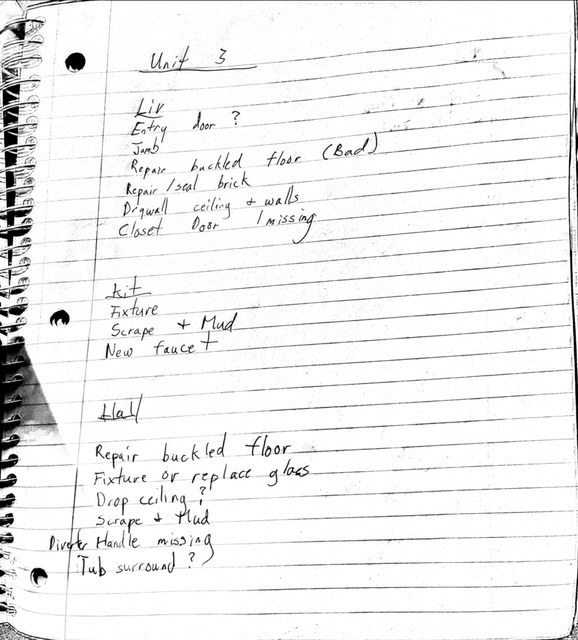 Unit 3
Liv
Entry door ?
Jamb
Repair buckled floor (Bad)
Repair/seal brick
Drywall ceiling + walls
Closet Door / missing
Kit
Fixture
Scrape + Mud
New faucet
Hall
Repair buckled floor
Fixture or replace glass
Drop ceiling ?
Scrape + Mud
Diverter Handle missing
Tub surround ?